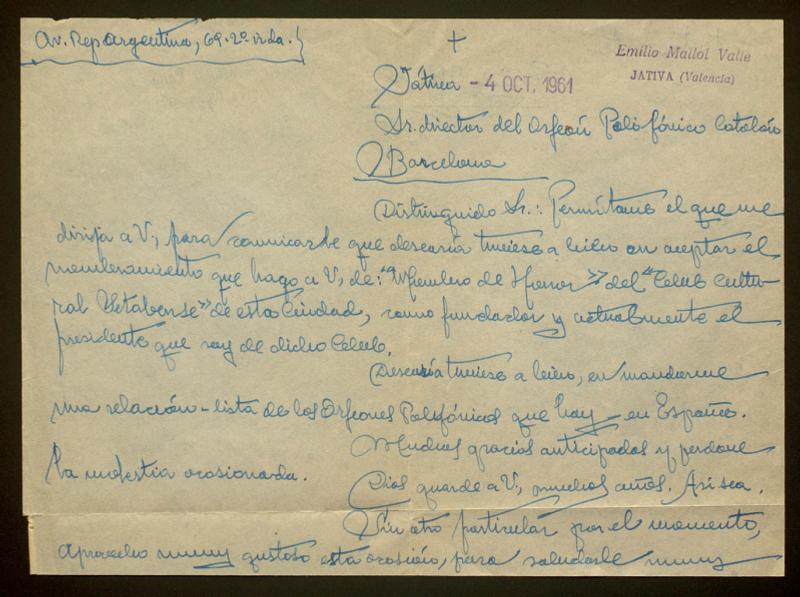 Av. Rep Argentina, 69-2º izda.
+
Emilio Mallol Valle
JATIVA (Valencia)
Játiva - 4 OCT. 1961
Sr. director del Orfeón Polifónico Catalán
Barcelona
Distinguido Sr.: Permítame el que me
dirija a V, para comunicarle que desearía tuviese a bien en aceptar el
nombramiento que hago a V, de: "Miembro de Honor" del "Club Cultu-
ral Setabense" de esta Ciudad, como fundador y actualmente el
presidente que soy de dicho Club.
Desearía tuviese a bien, en mandarme
una relación-lista de los Orfeones Polifónicos que hay en España.
Muchas gracias anticipadas y perdone
la molestia ocasionada.
Dios guarde a V, muchos años. Así sea.
Sin otro particular por el momento,
aprovecho muy gustoso esta ocasión, para saludarle muy